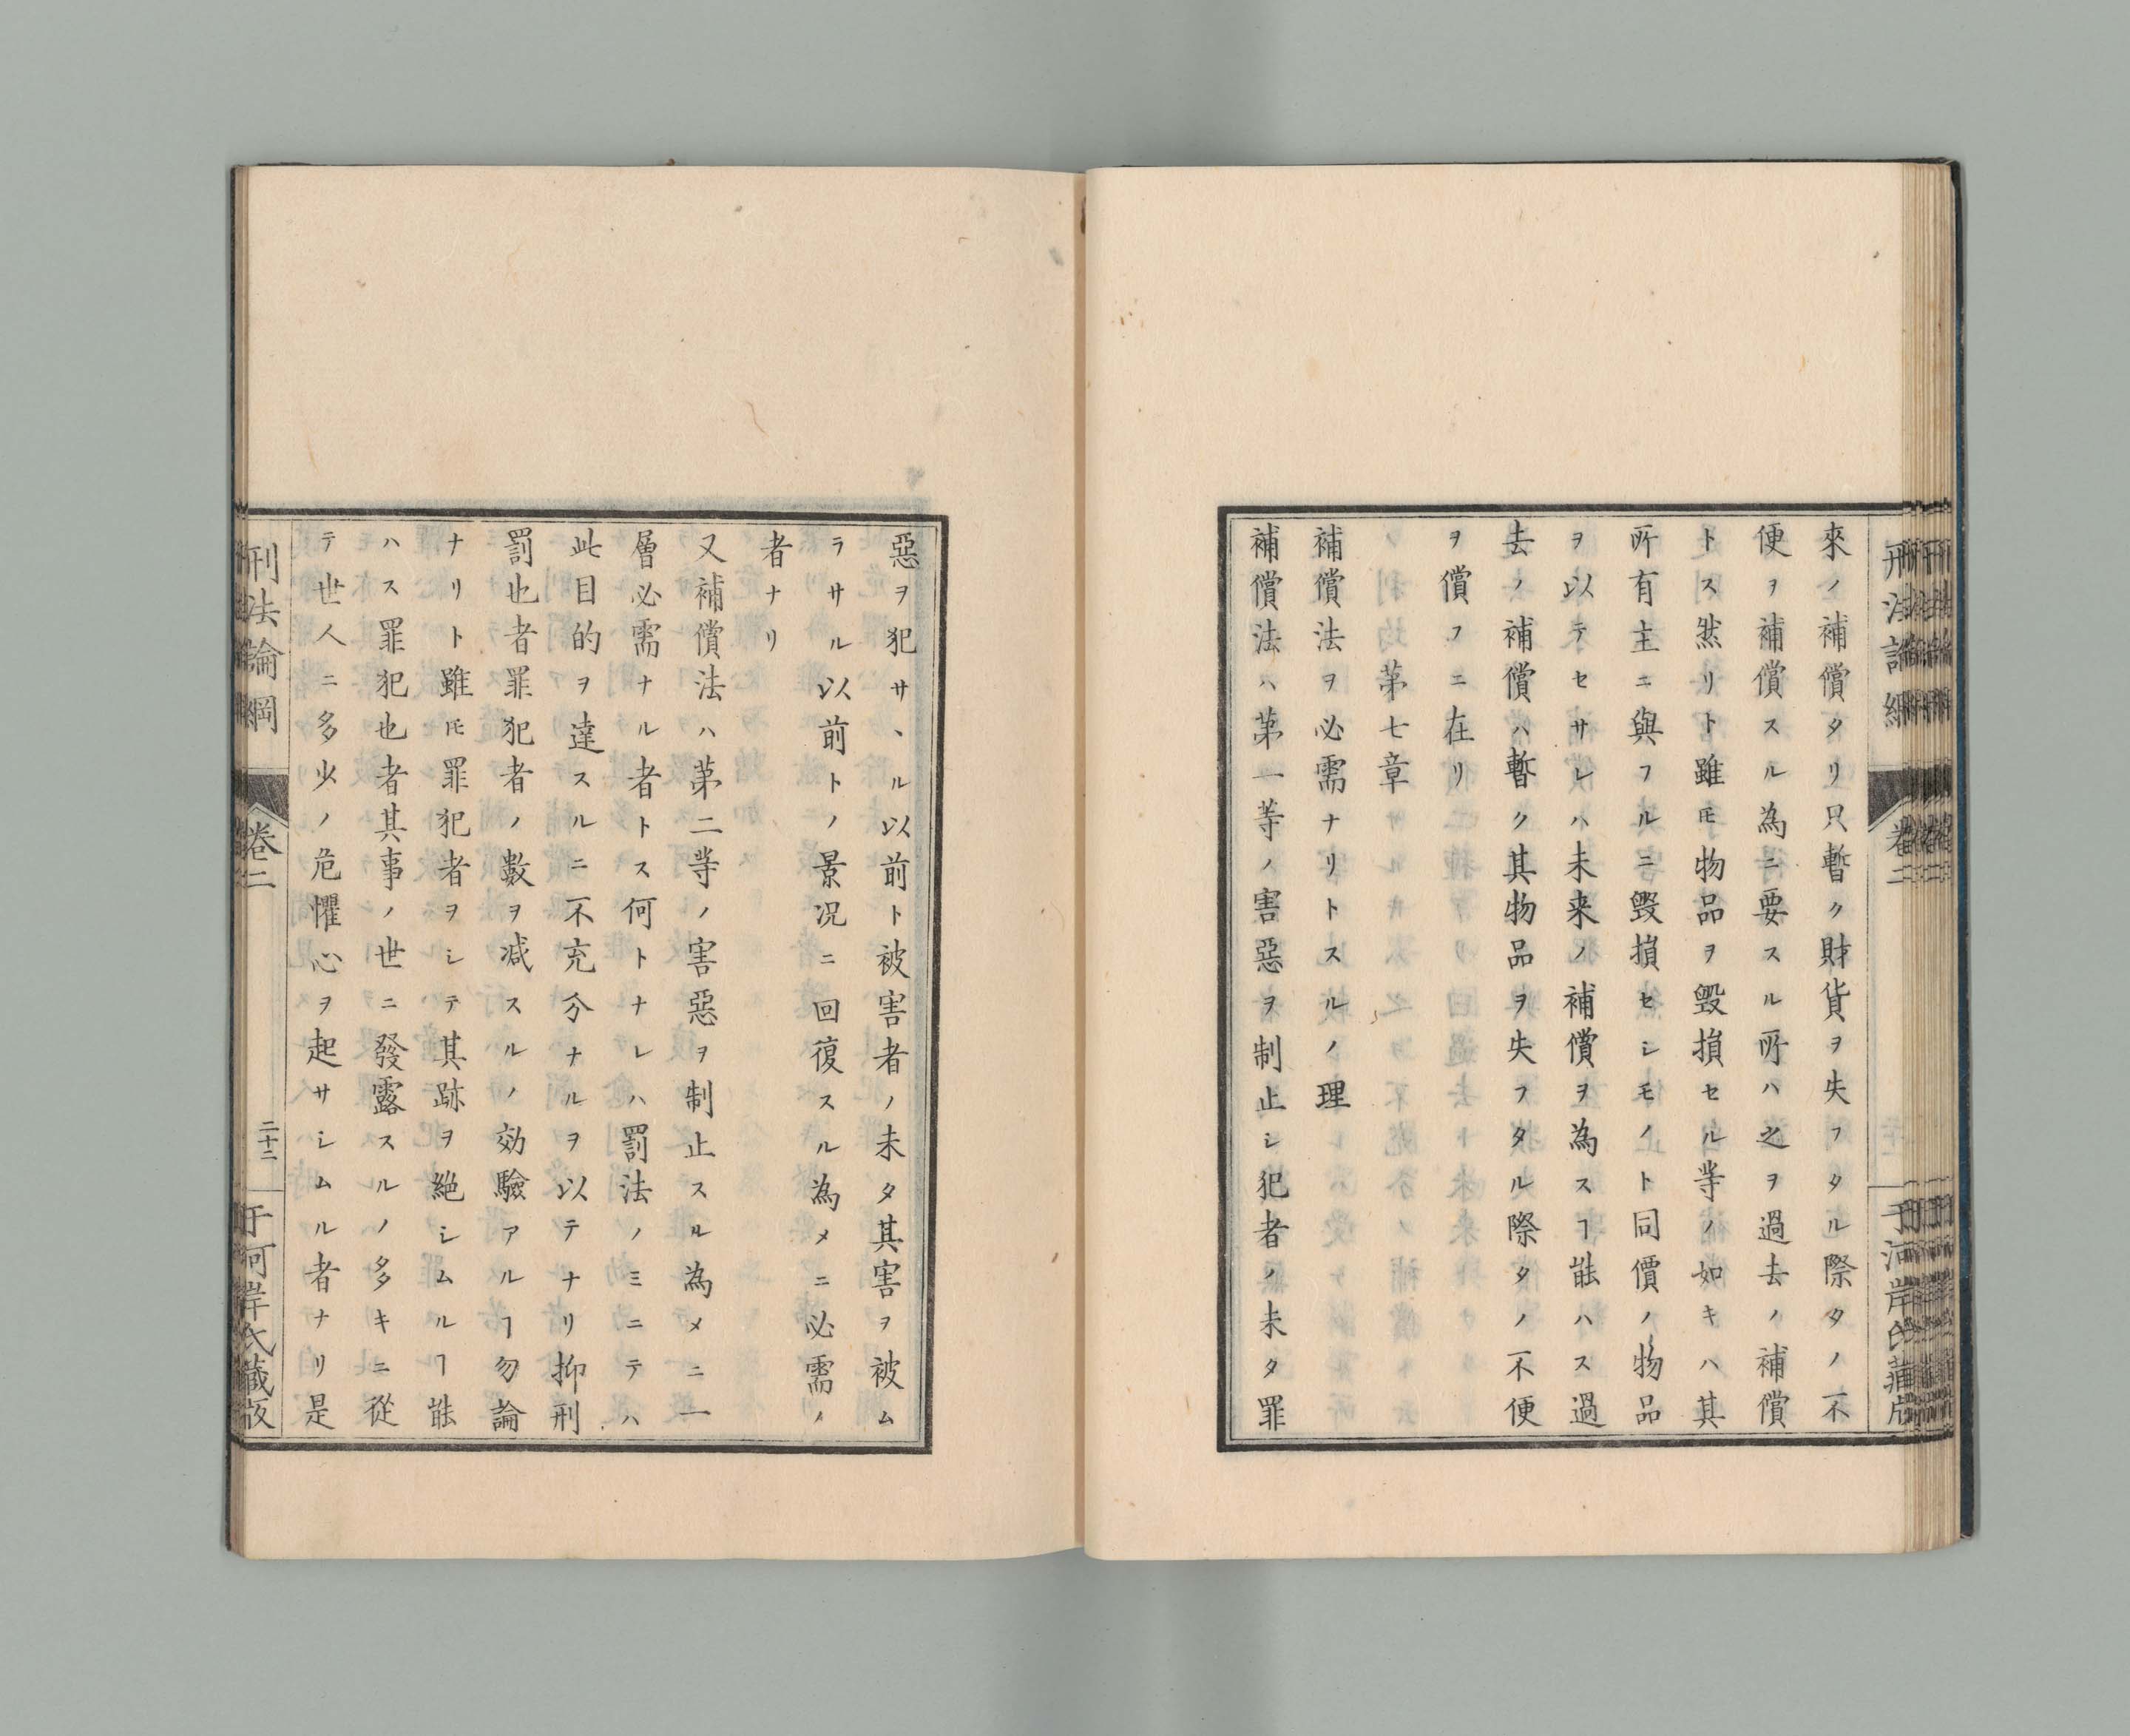 刑法論綱
卷二
于河岸氏藏版
來ノ補償タリ只暫ク財貨ヲ失フタル際タノ不
便ヲ補償スル為ニ要スル所ハ之ヲ過去ノ補償
トス然リト雖𪜈物品ヲ毀損セル等ノ如キハ其
所有主ニ與フルニ毀損セシモノト同價ノ物品
ヲ以テセサレハ未来ノ補償ヲ為スヿ能ハス過
去ノ補償ハ暫ク其物品ヲ失フタル際タノ不便
ヲ償フニ在リ
第七章
補償法ヲ必需ナリトスルノ理
補償法ハ第一等ノ害惡ヲ制止シ犯者ノ未タ罪
惡ヲ犯サヽル以前ト被害者ノ未タ其害ヲ被ム
ラサル以前トノ景況ニ回復スル為メニ必需ノ
者ナリ
又補償法ハ第二等ノ害惡ヲ制止スル為メニ一
層必需ナル者トス何トナレハ罰法ノミニテハ
此目的ヲ達スルニ不充分ナルヲ以テナリ抑刑
罰也者罪犯者ノ數ヲ减スルノ効驗アルヿ勿論
ナリト雖𪜈罪犯者ヲシテ其跡ヲ絶シムルヿ能
ハス罪犯也者其事ノ世ニ發露スルノ多キニ從
テ世人ニ多少ノ危懼心ヲ起サシムル者ナリ是
刑法論綱
卷二
二十二
于河岸氏藏版